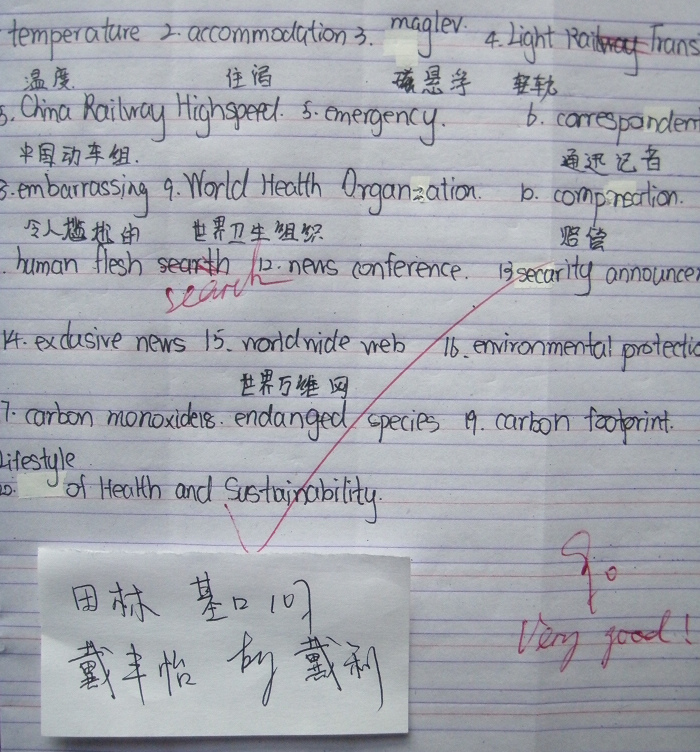 temperature 2. accommodation 3. maglev. 4. Light Railway Trans
温度 住宿 磁悬浮 轻轨
5. China Railway Highspeed. 5. emergency. 6. corresponden
中国动车组. 通迅记者
8. embarrassing 9. World Health Organzation. 10. compensation.
令人尴尬的 世界卫生组织 赔偿
. human flesh search 12. news conference. 13 secarity announcer
search
14. exclusive news 15. worldwide web 16. environmental protectio
世界万维网
7. carbon monoxide 18. endanged species 19. carbon footprint.
Lifestyle
20. of Health and Sustainability.
田林 基口107
戴丰怡 by 戴利
Very good!